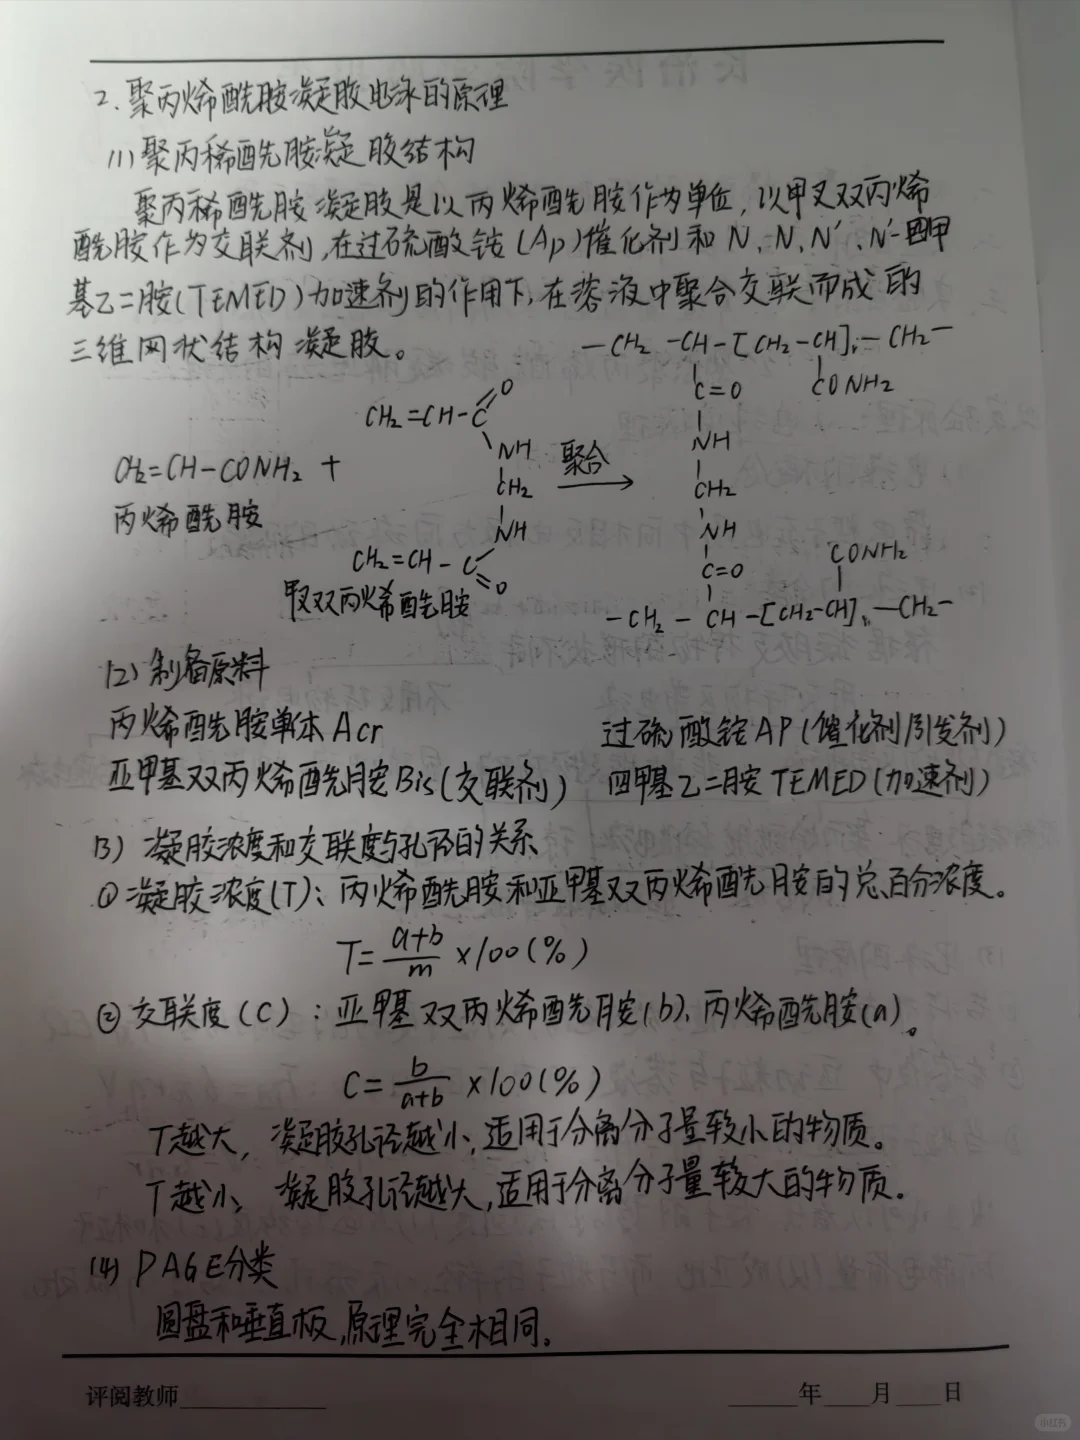 2. 聚丙烯酰胺凝胶电泳的原理
(1) 聚丙稀酰胺凝胶结构
聚丙稀酰胺凝胶是以丙烯酰胺作为单位，以甲叉双丙烯
酰胺作为交联剂，在过硫酸铵(Ap)催化剂和N、N、N'、N'-四甲
基乙二胺(TEMED)加速剂的作用下，在溶液中聚合交联而成的
三维网状结构凝胶。
—CH₂ —CH—[CH₂—CH]—CH₂—
C=O CONH₂
NH
CH₂
NH
C=O CONH₂
—CH₂ — CH —[CH₂-CH]—CH₂—
CH₂=CH—C=O
NH
CH₂
NH
CH₂=CH—C=O
CH₂=CH—CONH₂ +
丙烯酰胺
甲叉双丙烯酰胺
聚合
(2) 制备原料
丙烯酰胺单本Acr 过硫酸铵AP(催化剂/引发剂)
亚甲基双丙烯酰胺Bis(交联剂) 四甲基乙二胺TEMED(加速剂)
(3) 凝胶浓度和交联度与孔径的关系
① 凝胶浓度(T)：丙烯酰胺和亚甲基双丙烯酰胺的总百分浓度。
T= a+b/m ×100(%)
② 交联度(C)：亚甲基双丙烯酰胺(b)、丙烯酰胺(a)。
C= b/a+b ×100(%)
T越大，凝胶孔径越小，适用于分离分子量较小的物质。
T越小，凝胶孔径越大，适用于分离分子量较大的物质。
(4) PAGE分类
圆盘和垂直板，原理完全相同。
评阅教师
年 月 日
小红书